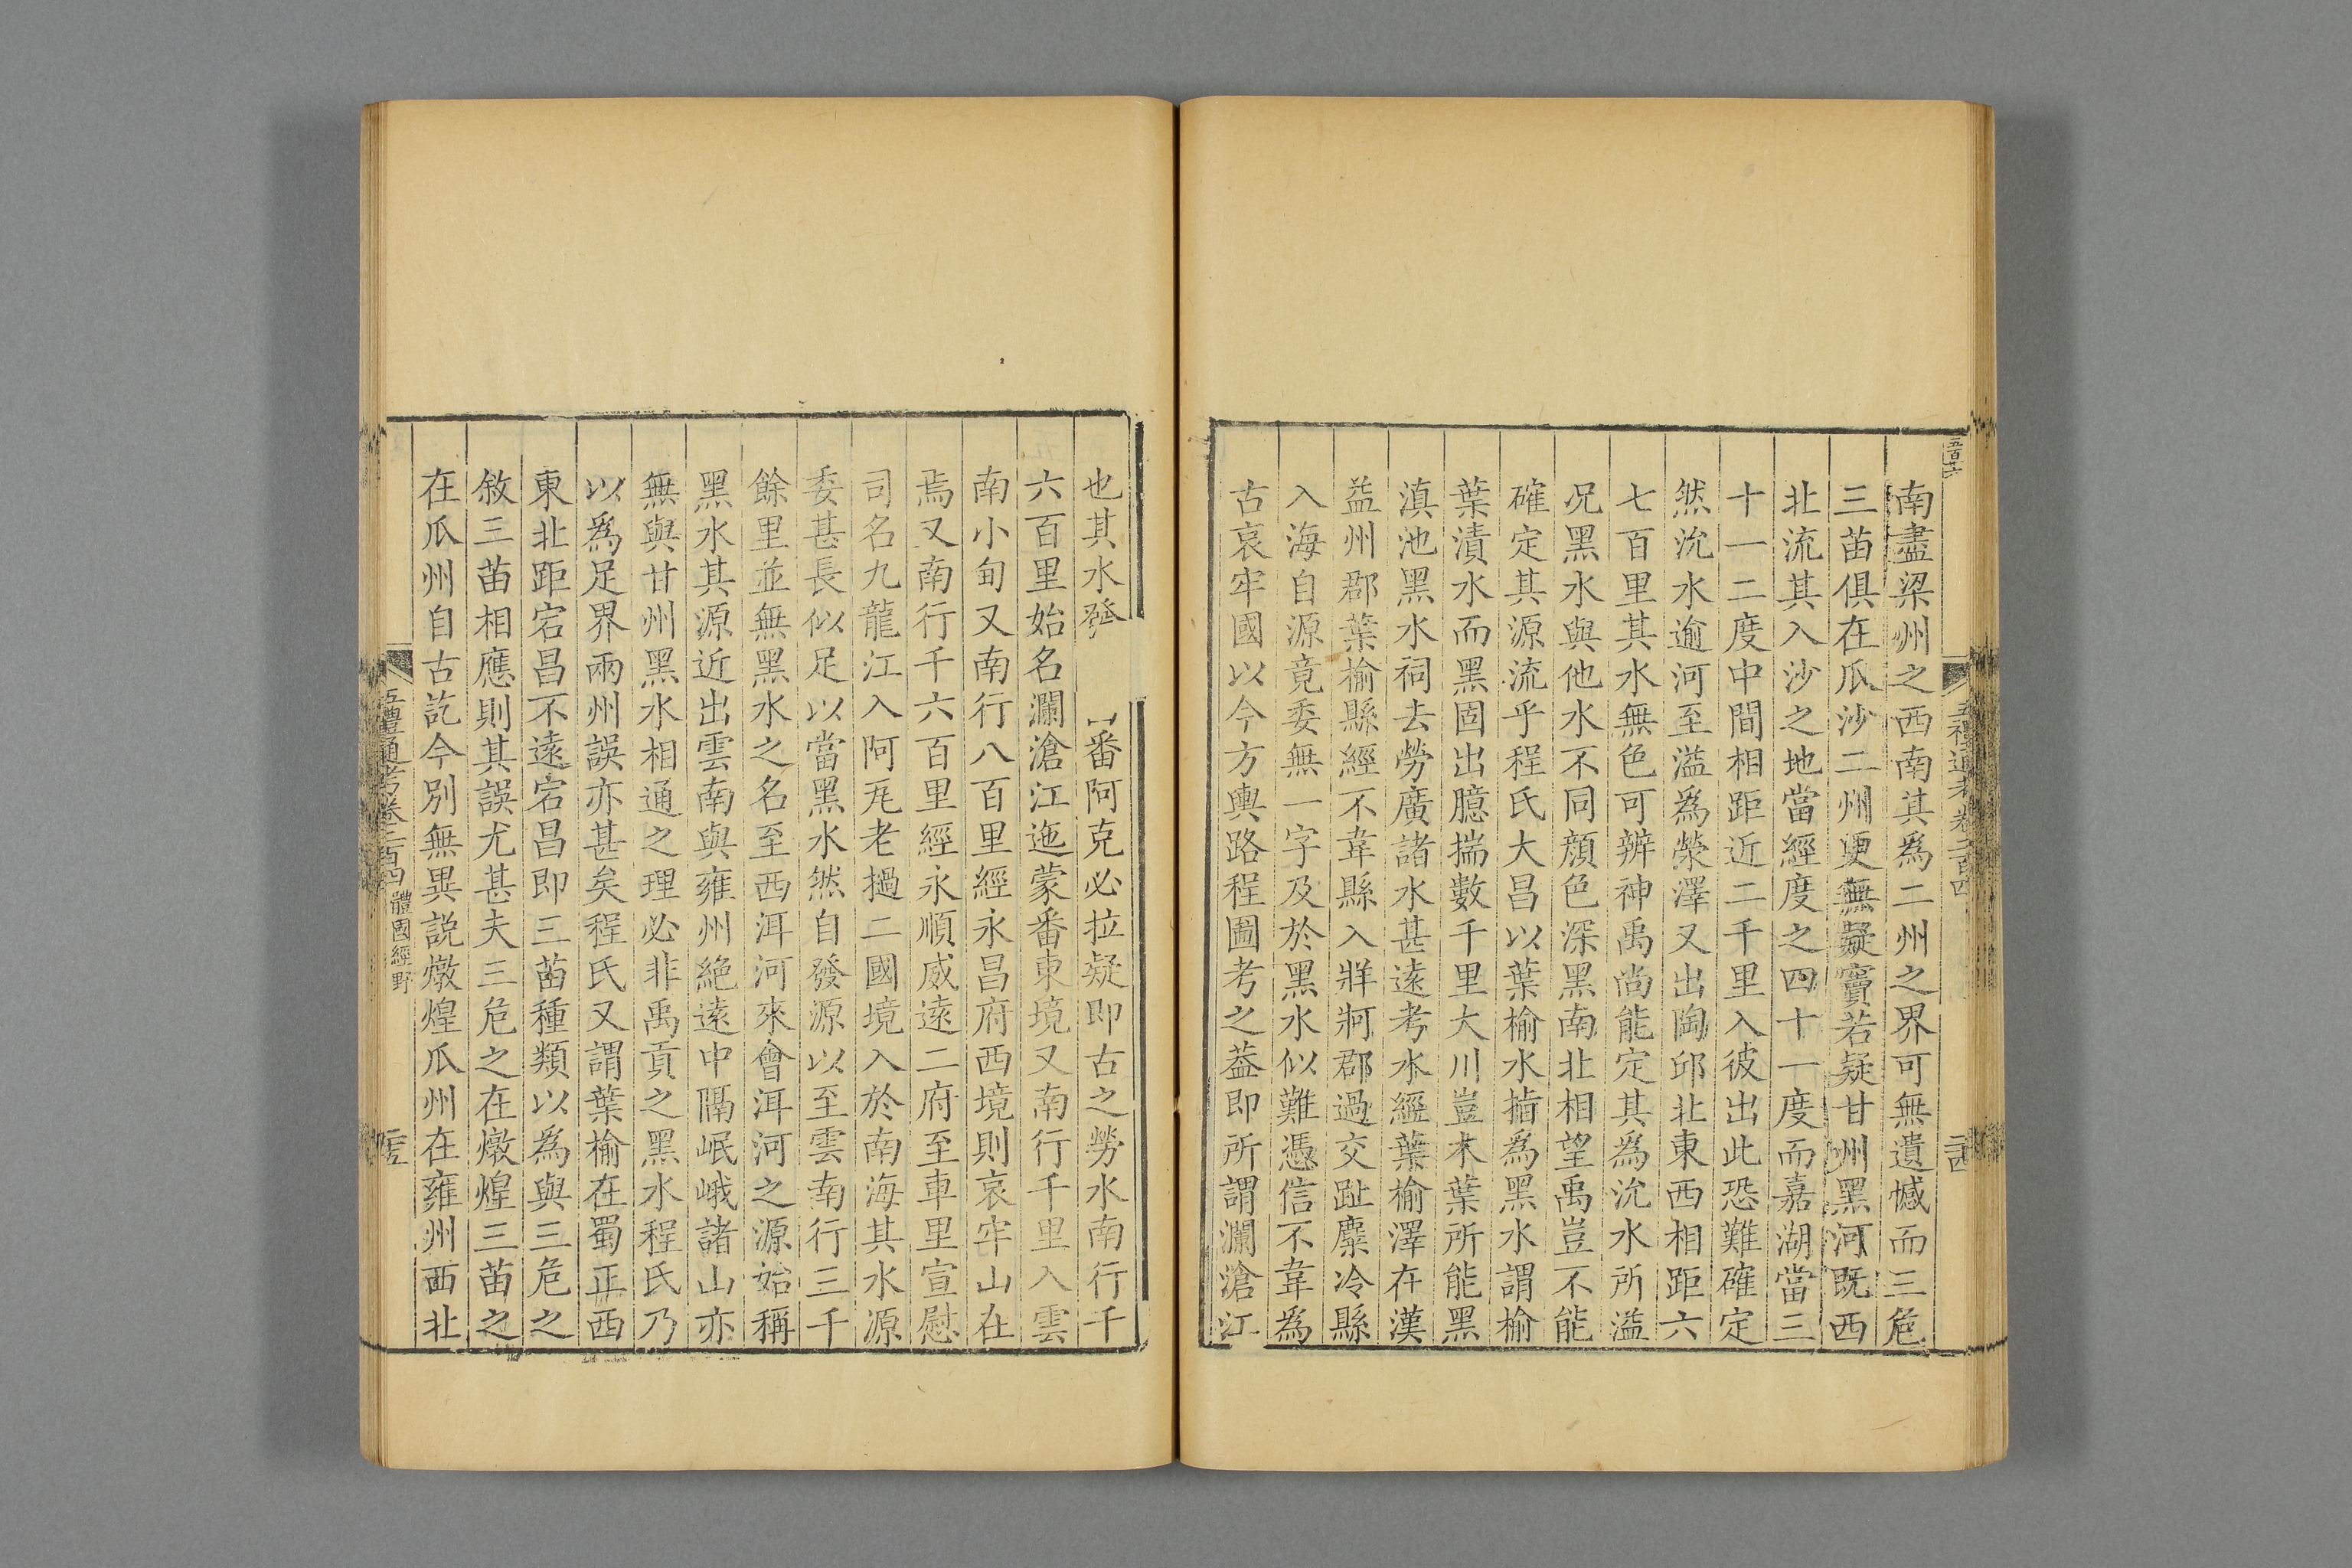 南盡梁州之西南其為二州之界可無遺憾而三危
三苗俱在瓜沙二州更無疑竇若疑甘州黑河既西
北流其入沙之地當經度之四十一度而嘉湖當三
十一二度中間相距近二千里入彼出此恐難確定
然沇水逾河至溢爲滎澤又出陶邱北東西相距六
七百里其水無色可辨神禹尚能定其爲沇水所溢
况黑水與他水不同顔色深黑南北相望禹豈不能
確定其源流乎程氏大昌以葉榆水指爲黑水謂榆
葉漬水而黑固出臆揣數千里大川豈木葉所能黑
滇池黑水祠去勞廣諸水甚遠考水經葉榆澤在漢
益州郡葉榆縣經不韋縣入牂牁郡過交趾麋冷縣
入海自源竟委無一字及於黑水似難憑信不韋爲
古哀牢國以今方輿路程圖考之葢即所謂瀾滄江
也其水發番阿克必拉疑即古之勞水南行千
六百里始名瀾滄江迤蒙番東境又南行千里入雲
南小甸又南行八百里經永昌府西境則哀牢山在
焉又南行千六百里經永順威遠二府至車里宣慰
司名九龍江入阿瓦老撾二國境入於南海其水源
委甚長似足以當黑水然自發源以至雲南行三千
餘里並無黑水之名至西洱河來會洱河之源始稱
黑水其源近出雲南與雍州絶遠中隔岷峨諸山亦
無與甘州黑水相通之理必非禹貢之黑水程氏乃
以爲足界兩州誤亦甚矣程氏又謂葉榆在蜀正西
東北距宕昌不遠宕昌即三苗種類以爲與三危之
敘三苗相應則其誤尤甚夫三危之在燉煌三苗之
在瓜州自古訖今別無異説燉煌瓜州在雍州西北
五禮通考卷二百四 體國經野